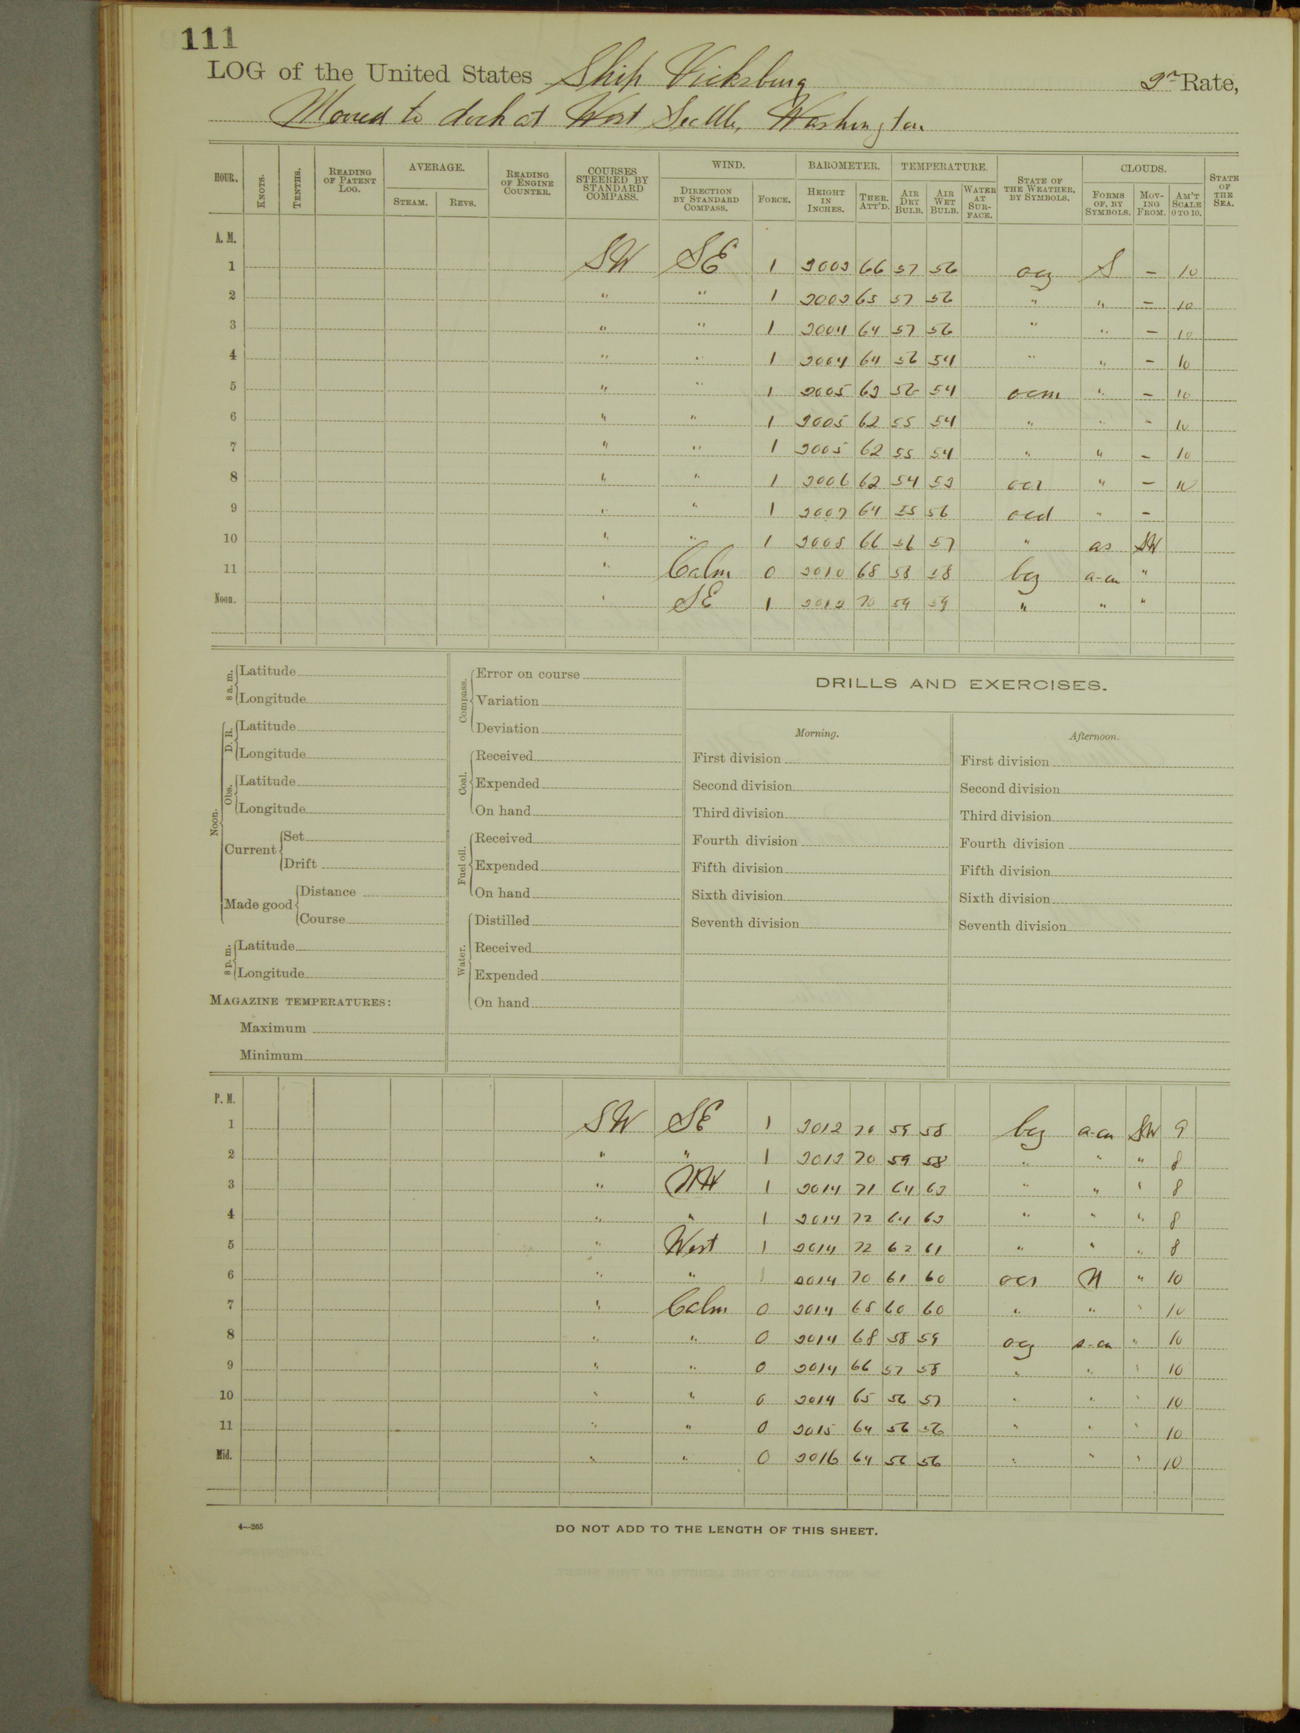 111
LOG of the United States Ship Vicksburg 2d Rate,
Moored to dock at West Seattle, Washington
HOUR. KNOTS. TENTHS. READING OF PATENT LOG. AVERAGE. STEAM. REVS. READING OF ENGINE COUNTER. COURSES STEERED BY STANDARD COMPASS. WIND. DIRECTION BY STANDARD COMPASS. FORCE. BAROMETER. HEIGHT IN INCHES. THER. ATT'D. TEMPERATURE. AIR DRY BULB. AIR WET BULB. WATER AT SURFACE. STATE OF THE WEATHER, BY SYMBOLS. CLOUDS. FORMS OF, BY SYMBOLS. MOVING FROM. AM'T SCALE 0 TO 10. STATE OF THE SEA.
A. M.
1 SW SE 1 3002 66 57 56 ocg S – 10
2 " " 1 3002 65 57 56 " " – 10
3 " " 1 3004 64 57 56 " " – 10
4 " " 1 3004 64 56 54 " " – 10
5 " " 1 3005 62 56 54 ocm " – 10
6 " " 1 3005 62 55 54 " " – 10
7 " " 1 3005 62 55 54 " " – 10
8 " " 1 3006 62 54 53 ocr " – 10
9 " " 1 3007 64 55 56 ocd " –
10 " " 1 3008 66 56 57 " as SW
11 " Calm 0 3010 68 58 58 bcg a-cu "
Noon. " SE 1 3012 70 59 59 " " "
8 a. m. Latitude
Longitude
Noon. D. R. Latitude
Longitude
Obs. Latitude
Longitude
Current Set
Drift
Made good Distance
Course
8 p. m. Latitude
Longitude
MAGAZINE TEMPERATURES:
Maximum
Minimum
Compass. Error on course
Variation
Deviation
Coal. Received
Expended
On hand
Fuel oil. Received
Expended
On hand
Water. Distilled
Received
Expended
On hand
DRILLS AND EXERCISES.
Morning.
First division
Second division
Third division
Fourth division
Fifth division
Sixth division
Seventh division
Afternoon.
First division
Second division
Third division
Fourth division
Fifth division
Sixth division
Seventh division
P. M.
1 SW SE 1 3012 70 59 58 bcg a-cu SW 9
2 " " 1 3012 70 59 58 " " " 8
3 " NW 1 3014 71 64 62 " " " 8
4 " " 1 3014 72 64 62 " " " 8
5 " West 1 3014 72 62 61 " " " 8
6 " " 1 3014 70 61 60 ocr N " 10
7 " Calm 0 3014 68 60 60 " " " 10
8 " " 0 3014 68 58 59 ocg s-cu " 10
9 " " 0 3014 66 57 58 " " " 10
10 " " 0 3014 65 56 57 " " " 10
11 " " 0 3015 64 56 56 " " " 10
Mid. " " 0 3016 64 56 56 " " " 10
4—265
DO NOT ADD TO THE LENGTH OF THIS SHEET.